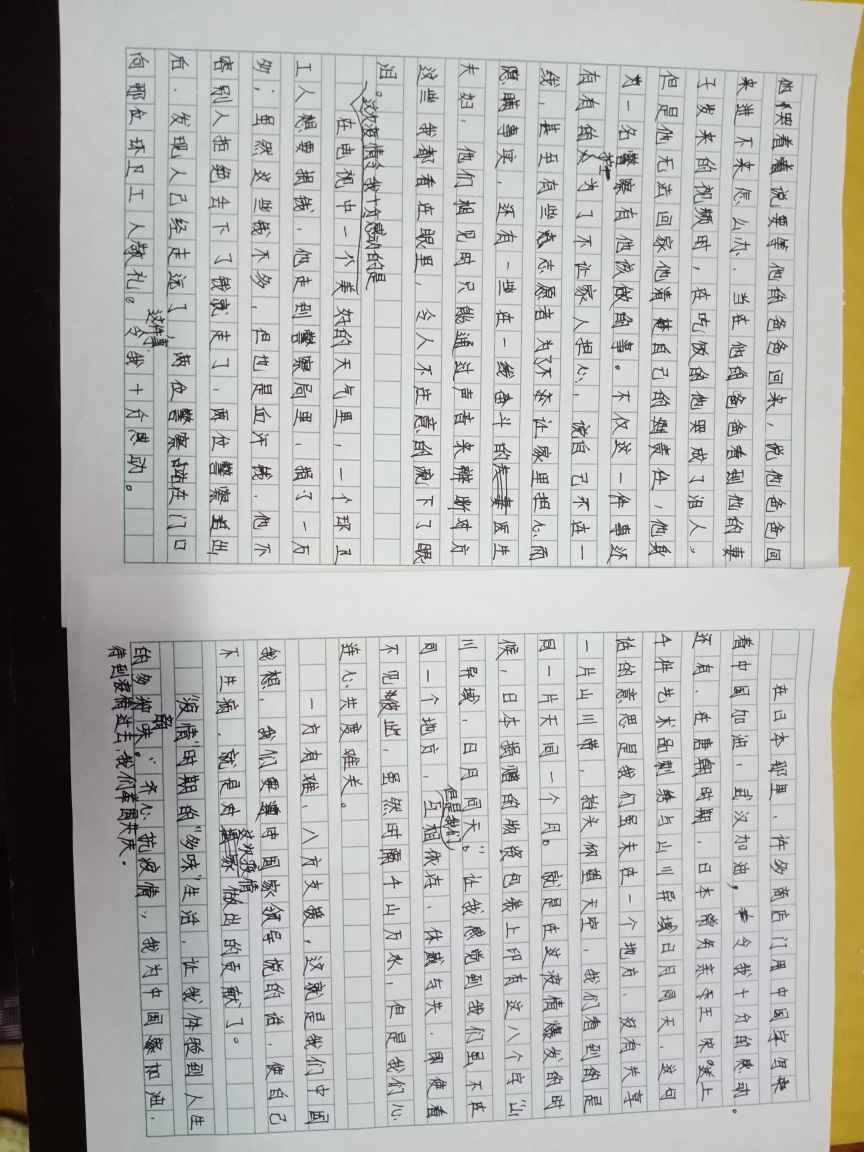 他哭着说要等他的爸爸回来，说他爸爸回
来进不来怎么办，当在他的爸爸看到他的妻
子发来的视频时，在吃饭的他哭成了泪人。
但是他无法回家他清楚自己的责任，他身
为一名警察有他该做的事。不仅这一件事还
有有的为了不让家人担心，说自己不在一
线，甚至有些志愿者为了不让家里担心而
隐瞒事实，还有一些在一线奋斗的医生
夫妇，他们相见时只能通过声音来辨断对方
这些我都看在眼里，令人不在意的流下了眼
泪。
这次疫情令我十分感动的是
在电视中一个美好的天气里，一个环卫
工人想要捐钱，他走到警察局里，捐了一万
多，虽然这些钱不多，但也是血汗钱，他不
等别人拒绝丢下了钱就走了，两位警察追出
后，发现人已经走远了两位警察站在门口
向那位环卫工人敬礼。这件事令我十分感动。
在日本那里，许多商店门用中国字写来
着中国加油，武汉加油，令我十分的感动。
还有，在唐朝时期，日本长屋王送上
千件艺术品刺绣与山川异域日月同天，这句
话的意思是我们虽未在一个地方，没有共享
一片山川带，抬头仰望天空，我们看到的是
同一片天同一个月。就是在这疫情爆发的时
候，日本捐赠的物资包装上印有这八个字“山
川异域，日月同天。”让我感觉到我们虽不在
同一个地方，但是我们互相依存，休戚与共，即使看
不见彼此，虽然时隔千山万水，但是我们心
连心共度难关。
一方有难，八方支援，这就是我们中国
我想，我们要遵中国家领导说的话，使自己
不生病，就是对这次疫情做出的贡献了。
“疫情”时期的“多味”生活，让我体验到人生
的多种韵味。”齐心抗疫情，我为中国加油，
待到疫情过去，我们举国共庆。